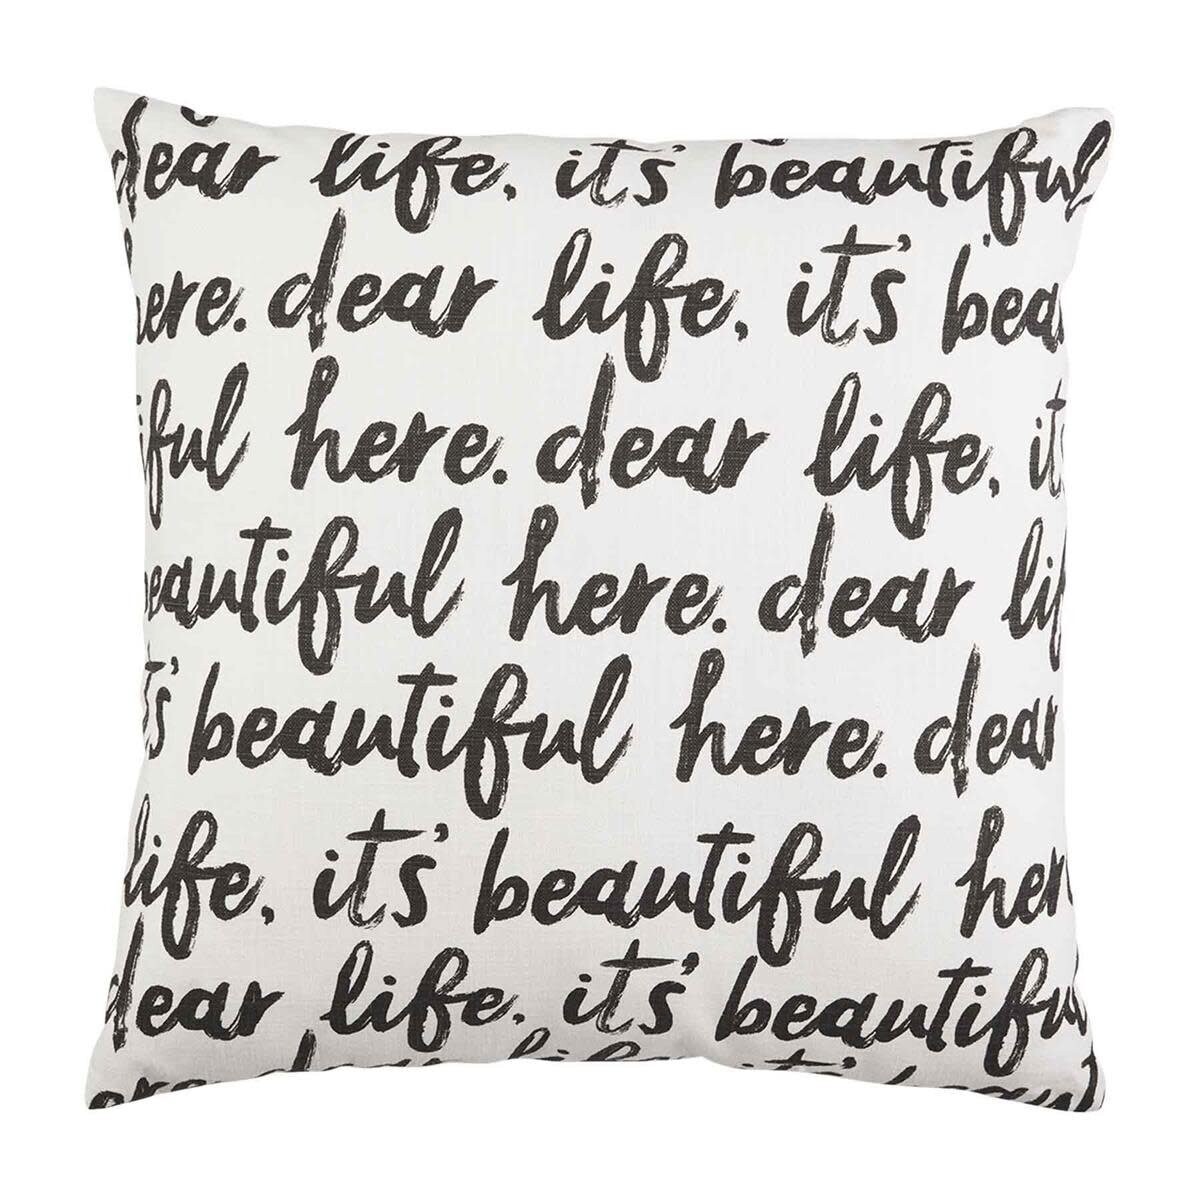 dear life, it's beautiful
here. dear life, it's beau
iful here. dear life, it's
beautiful here. dear lif
it's beautiful here. dear
life, it's beautiful here
dear life, it's beautiful
ere. dear life, it's beaut